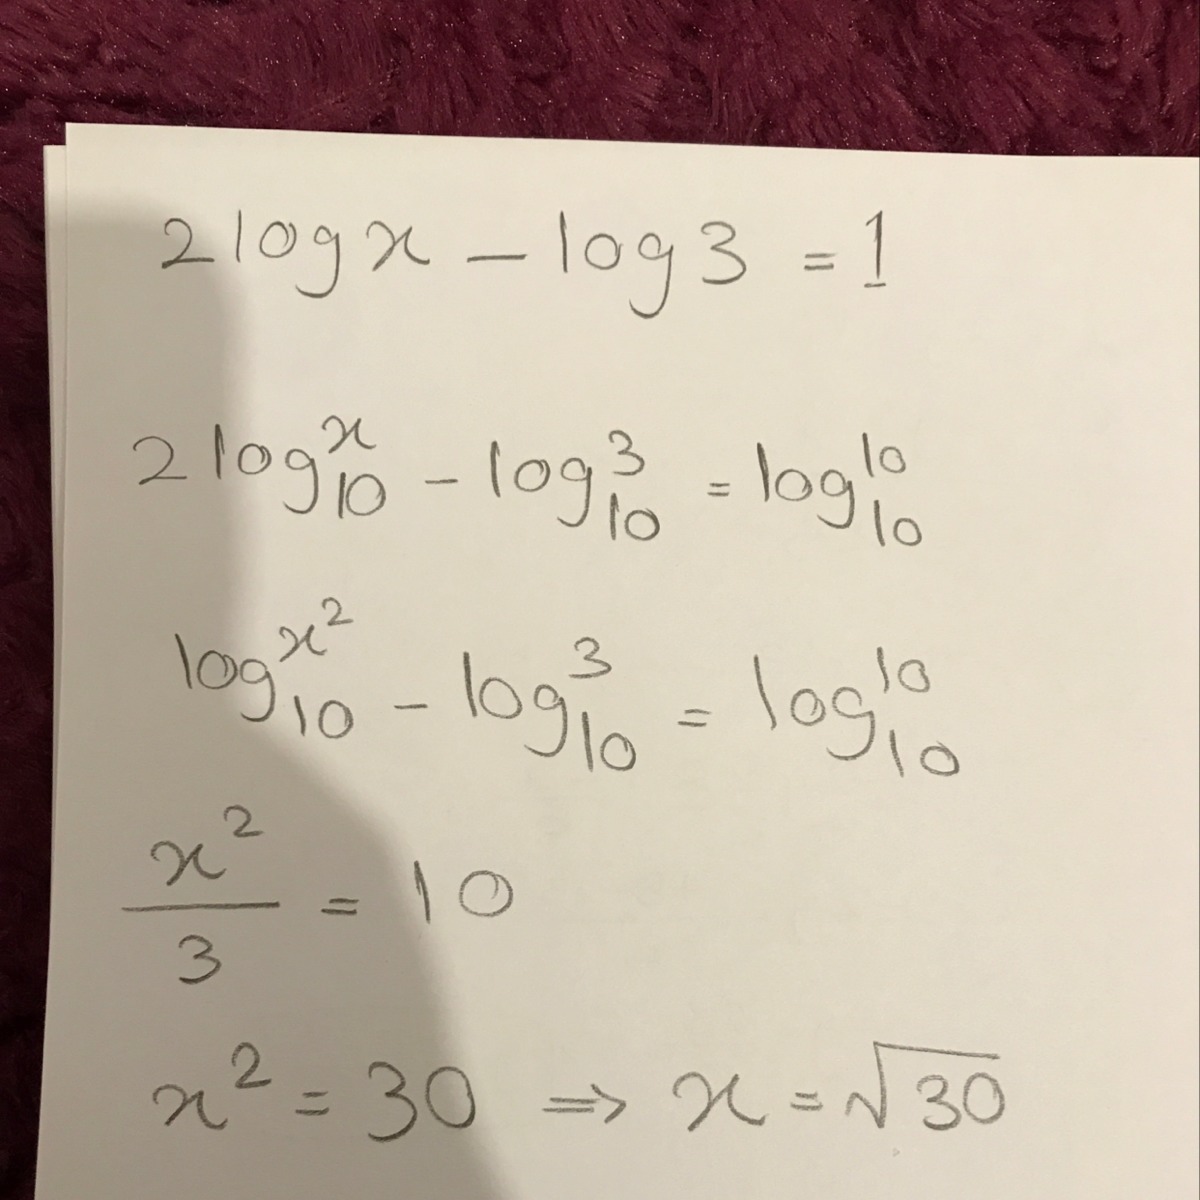 2 log x - log 3 = 1
2 log₁₀ˣ - log₁₀³ = log₁₀¹⁰
log₁₀^x² - log₁₀³ = log₁₀¹⁰
x²/3 = 10
x² = 30 ⇒ x = √30